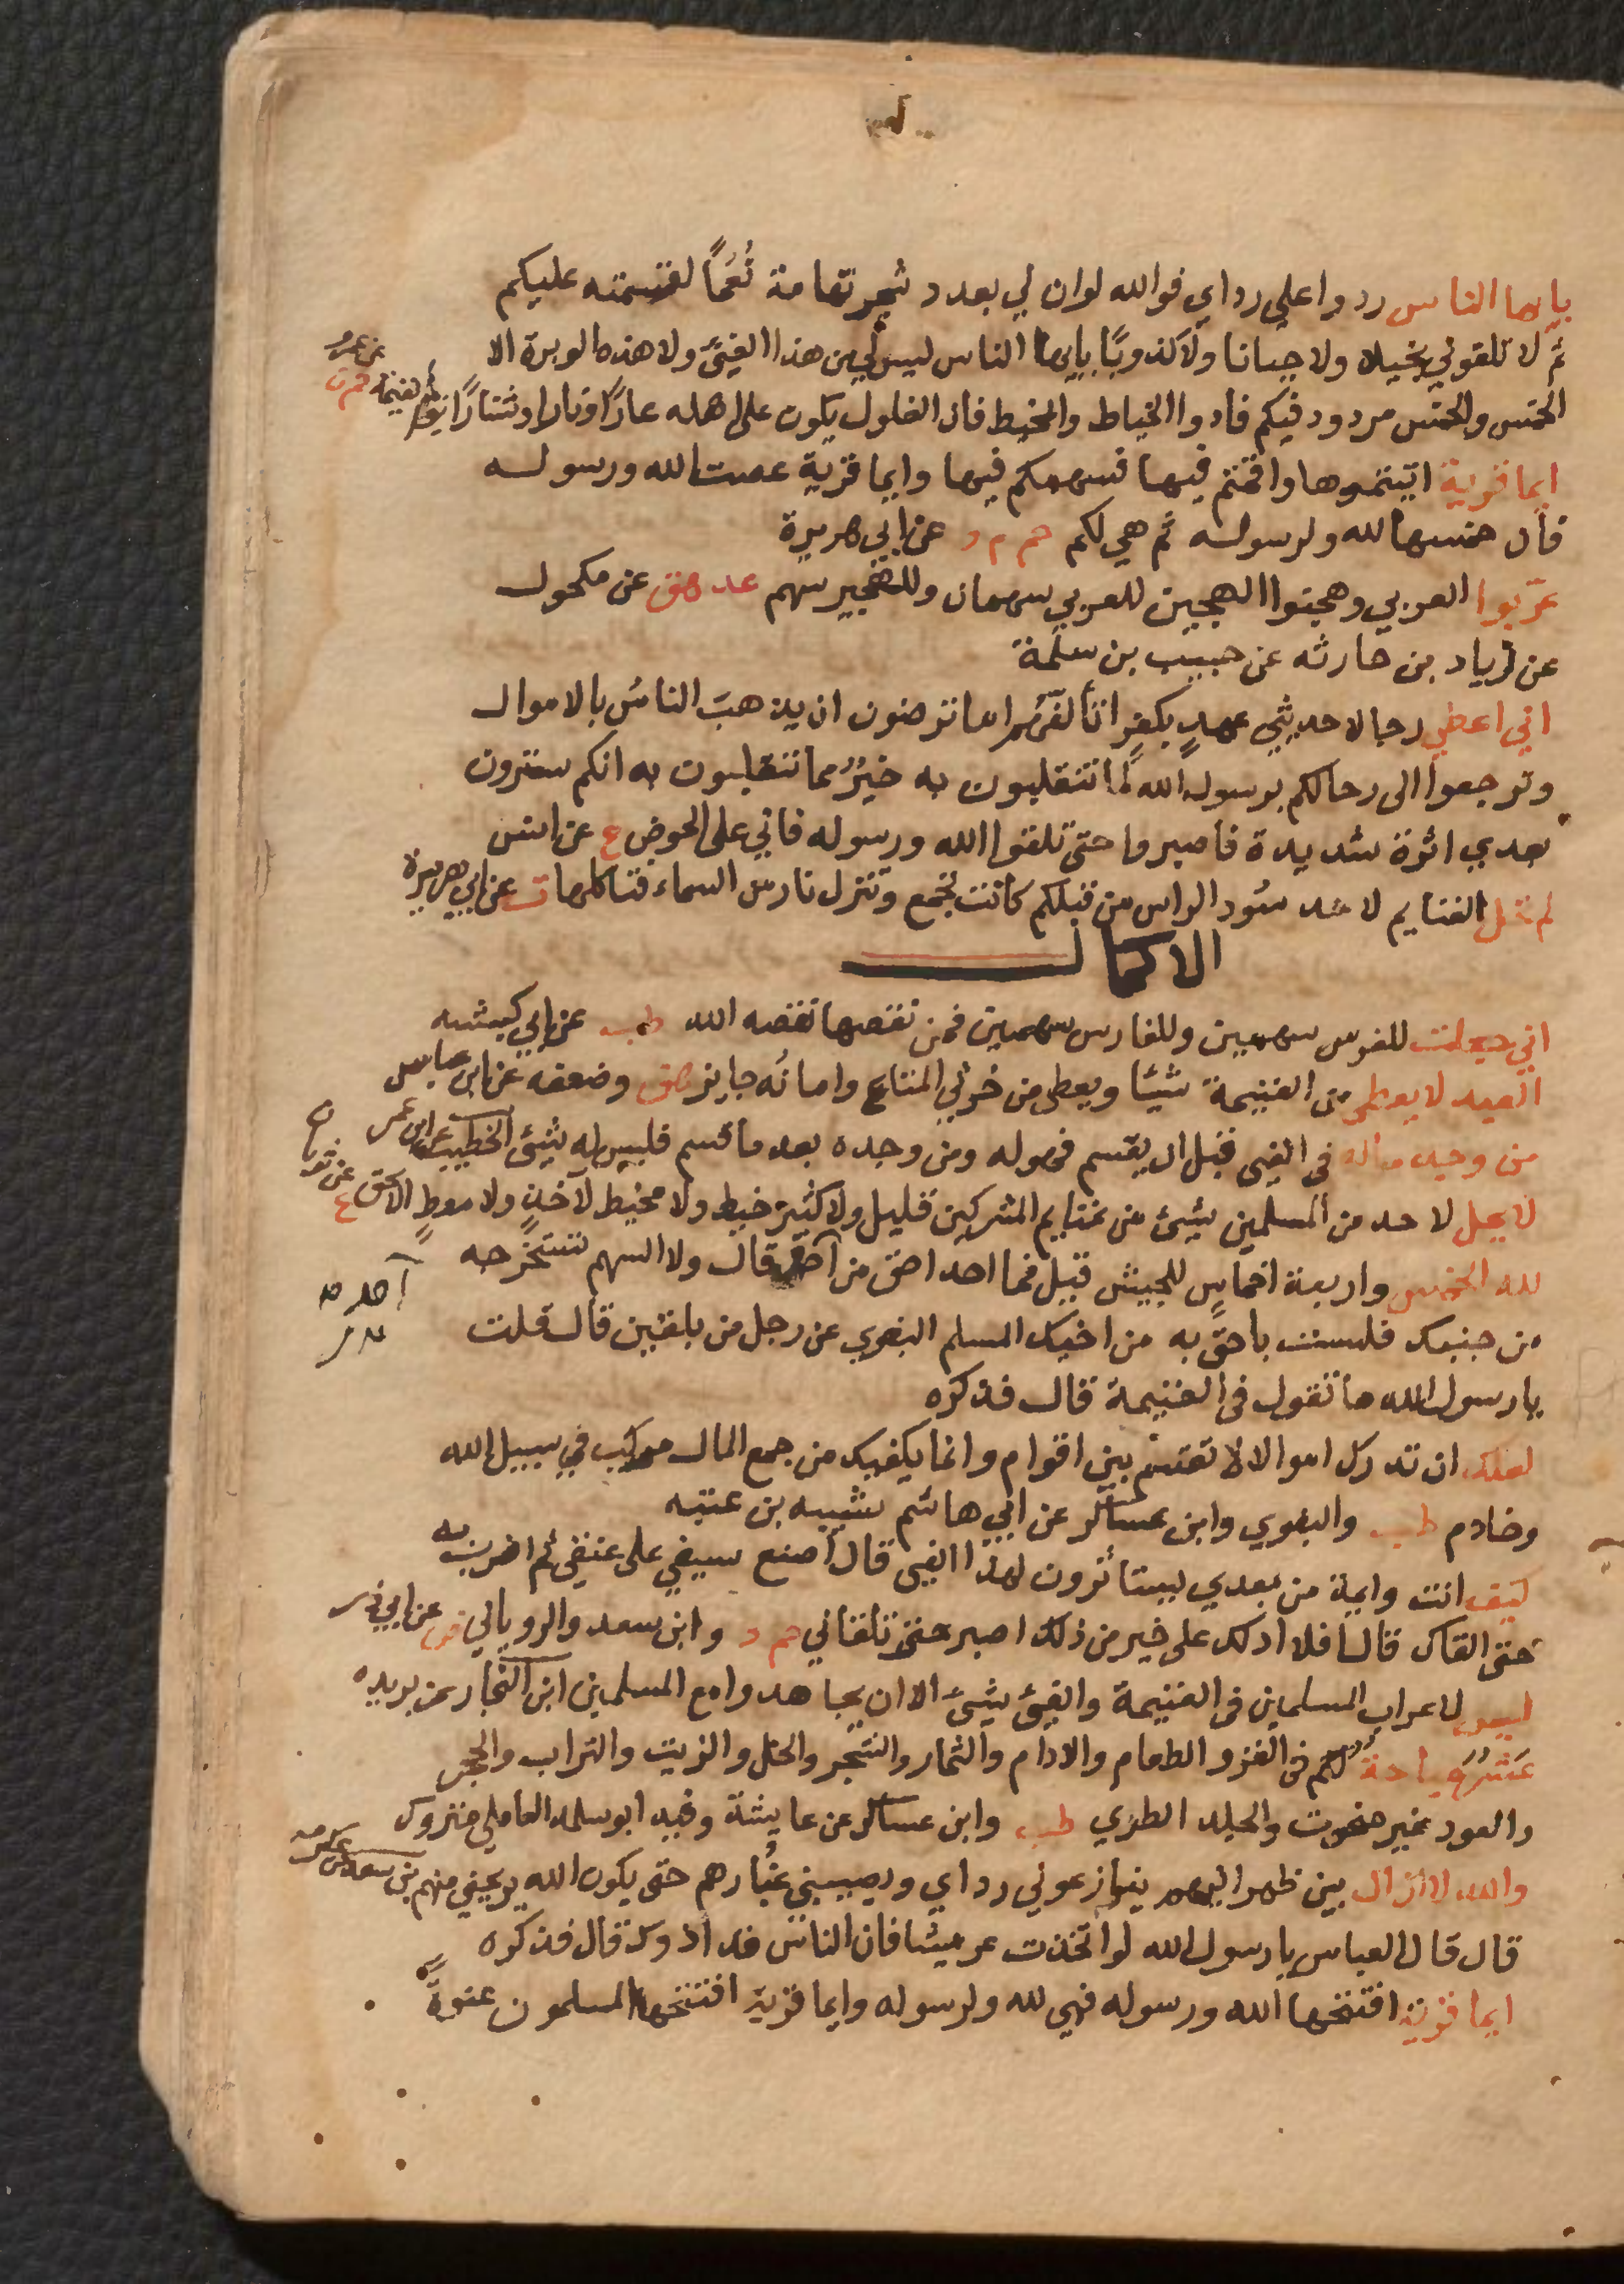 يايها الناس ردوا علي رداي فوالله لوان لي بعدد شجر تهامة نُعَمًا لقسمته عليكم
ثم لا تلقوني بخيلا ولا جبانا ولا كذوبًا يايها الناس ليس لي من هذا الفيئ ولا هذه الوبرة الا
الخمس والخمس مردود فيكم فادوا الخياط والمخيط فان الغلول يكون على اهله عارًا ونارا وشنارًا يوم القيمة حم ن عن عمرو
ايما قرية اتيتموها واقمتم فيها فسهمكم فيها وايما قرية عصت الله ورسوله
فان خمسها لله ولرسوله ثم هي لكم حم م د عن ابي هريرة
عرّبوا العربي وهجنوا الهجين للعربي سهمان وللهجين سهم عد هق عن مكحول
عن زياد بن حارثه عن حبيب بن سلمة
اني اعطي رجالا حديثي عهدٍ بكفر اتألفهم اما ترضون ان يذهبَ الناسُ بالاموال
وترجعوا الى رحالكم برسول الله لما تنقلبون به خيرٌ مما تنقلبون به انكم سترون
بعدي اثرة شديدة فاصبروا حتى تلقوا الله ورسوله فاني على الحوض ع عن انس
لم تحل الغنايم لاحد سُود الراس من قبلكم كانت تجمع وتنزل نار من السماء فتاكلها ت عن ابي هريرة
الاكمال
اني جعلت للفرس سهمين وللفارس سهمين فمن نقصها نقصه الله طب عن ابي كبشه
العبد لا يعطى من الغنيمة شيئًا ويعطى من خرثي المتاع وامانُه جايز هق وضعفه عن ابن عباس
من وجد ماله في الفيئ قبل ان يقسم فهو له ومن وجده بعد ما قسم فليس له شيئ الخطيب عن ابن عمر
لا يحل لاحد من المسلمين شيئ من غنايم المشركين قليل ولا كثير خيط ولا مخيط لآخذٍ ولا معطٍ الا بحق ع عن ثوبان
لله الخمس واربعة اخماس للجيش قيل فما احد احق من احد قال ولا السهم تستخرجه
من جنبك فلست باحق به من اخيك المسلم البغوي عن رجل من بلقين قال قلت
يا رسول الله ما تقول في الغنيمة قال فذكره
لعلك ان تدرك اموالا لا تقتسم بين اقوام وانما يكفيك من جمع المال مركب في سبيل الله
وخادم طب والبغوي وابن عساكر عن ابي هاشم شيبه بن عتبه
كيف انت وايمة من بعدي يستأثرون بهذا الفيئ قال اضع سيفي على عنقي ثم اضرب به
حتى القاك قال افلا ادلك على خير من ذلك اصبر حتى تلقاني حم د وابن سعد والروياني ض عن ابي ذر
ليس لاعراب المسلمين في الغنيمة والفيئ شيئ الا ان يجاهدوا مع المسلمين ابن النجار عن بريده
عَشرُ مباحة لكم في الغزو الطعام والادام والثمار والشجر والخل والزيت والتراب والحجر
والعود غير منحوت والجلد الطري طب وابن عساكر عن عايشة وفيه ابو سلمه العاملي متروك
والله لا ازال بين ظهرانيهم ينازعوني رداي ويصيبني غُبارهم حتى يكون الله يريحني منهم ابن سعد عن عكرمه
قال قال العباس يا رسول الله لو اتخذت عريشا فان الناس قد اذوك قال فذكره
ايما قرية افتتحها الله ورسوله فهي لله ولرسوله وايما قرية افتتحها المسلمون عنوةً